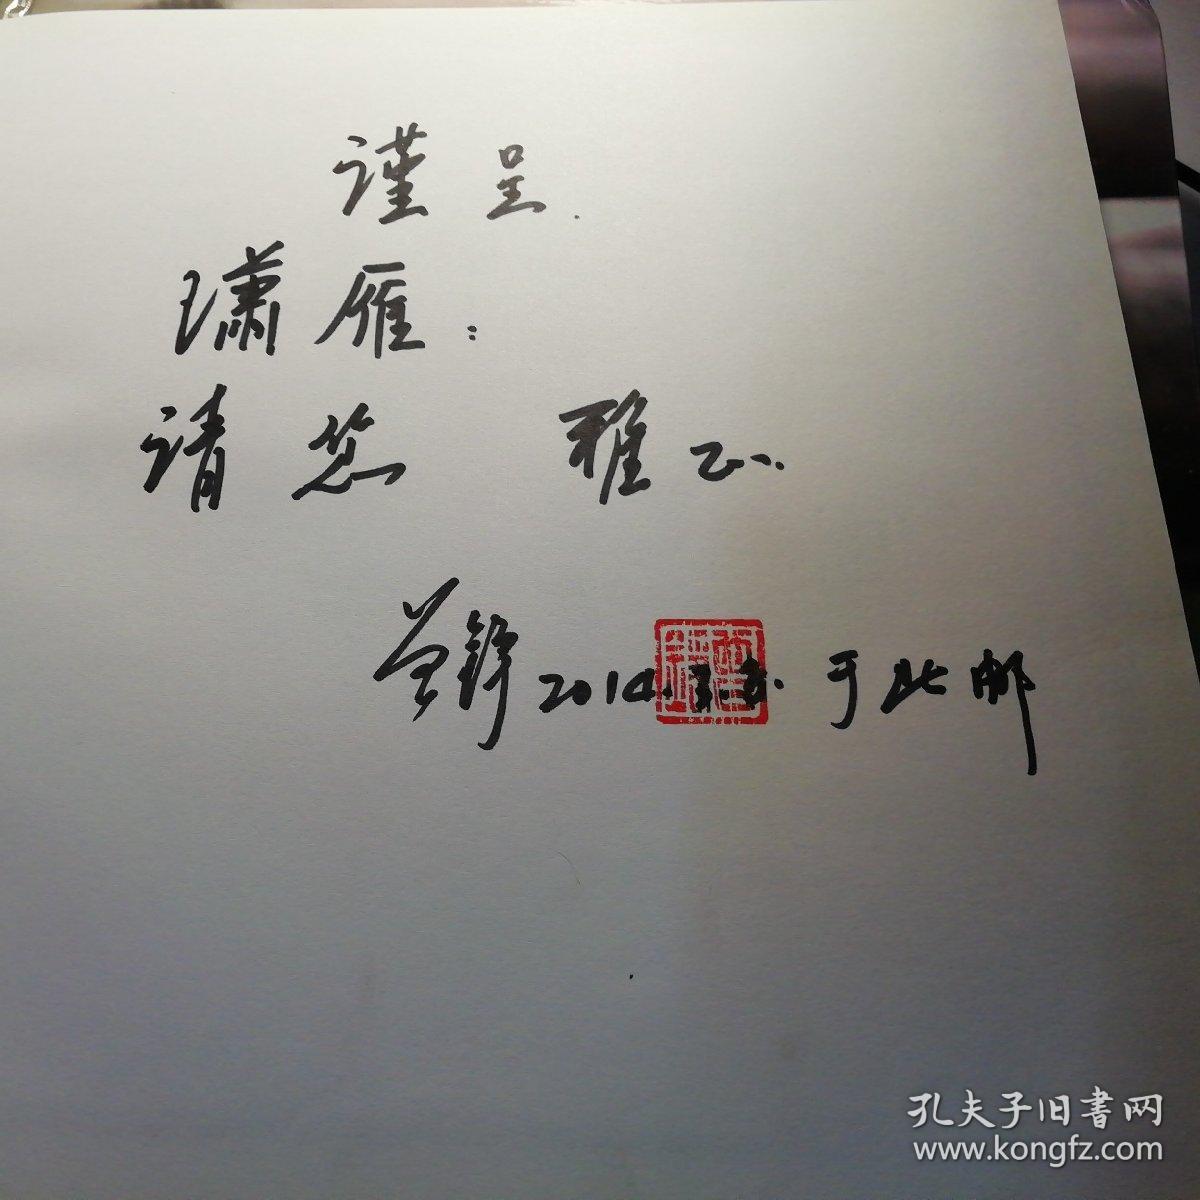 谨呈.
瓎雁:
请您 雅正.
曾锋 2014. 于北邮
孔夫子旧书网
www.kongfz.com